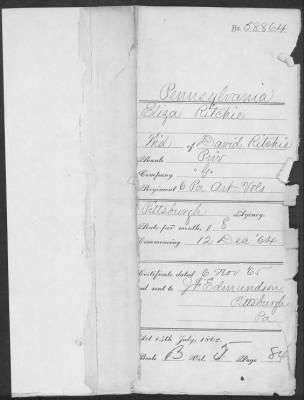 No. 58864
Pennsylvania
Eliza Ritchie
Wid of David Ritchie
Rank Priv
Company "G"
Regiment 6 Pa Art Vols
Pittsburgh Agency.
Rate per month, $ 8
Commencing 12 Dec '64
Certificate dated 6 Nov '65
and sent to J H Edmundson
Pittsburgh
Pa
Act 14th July, 1862.
Book B Vol. J Page 84